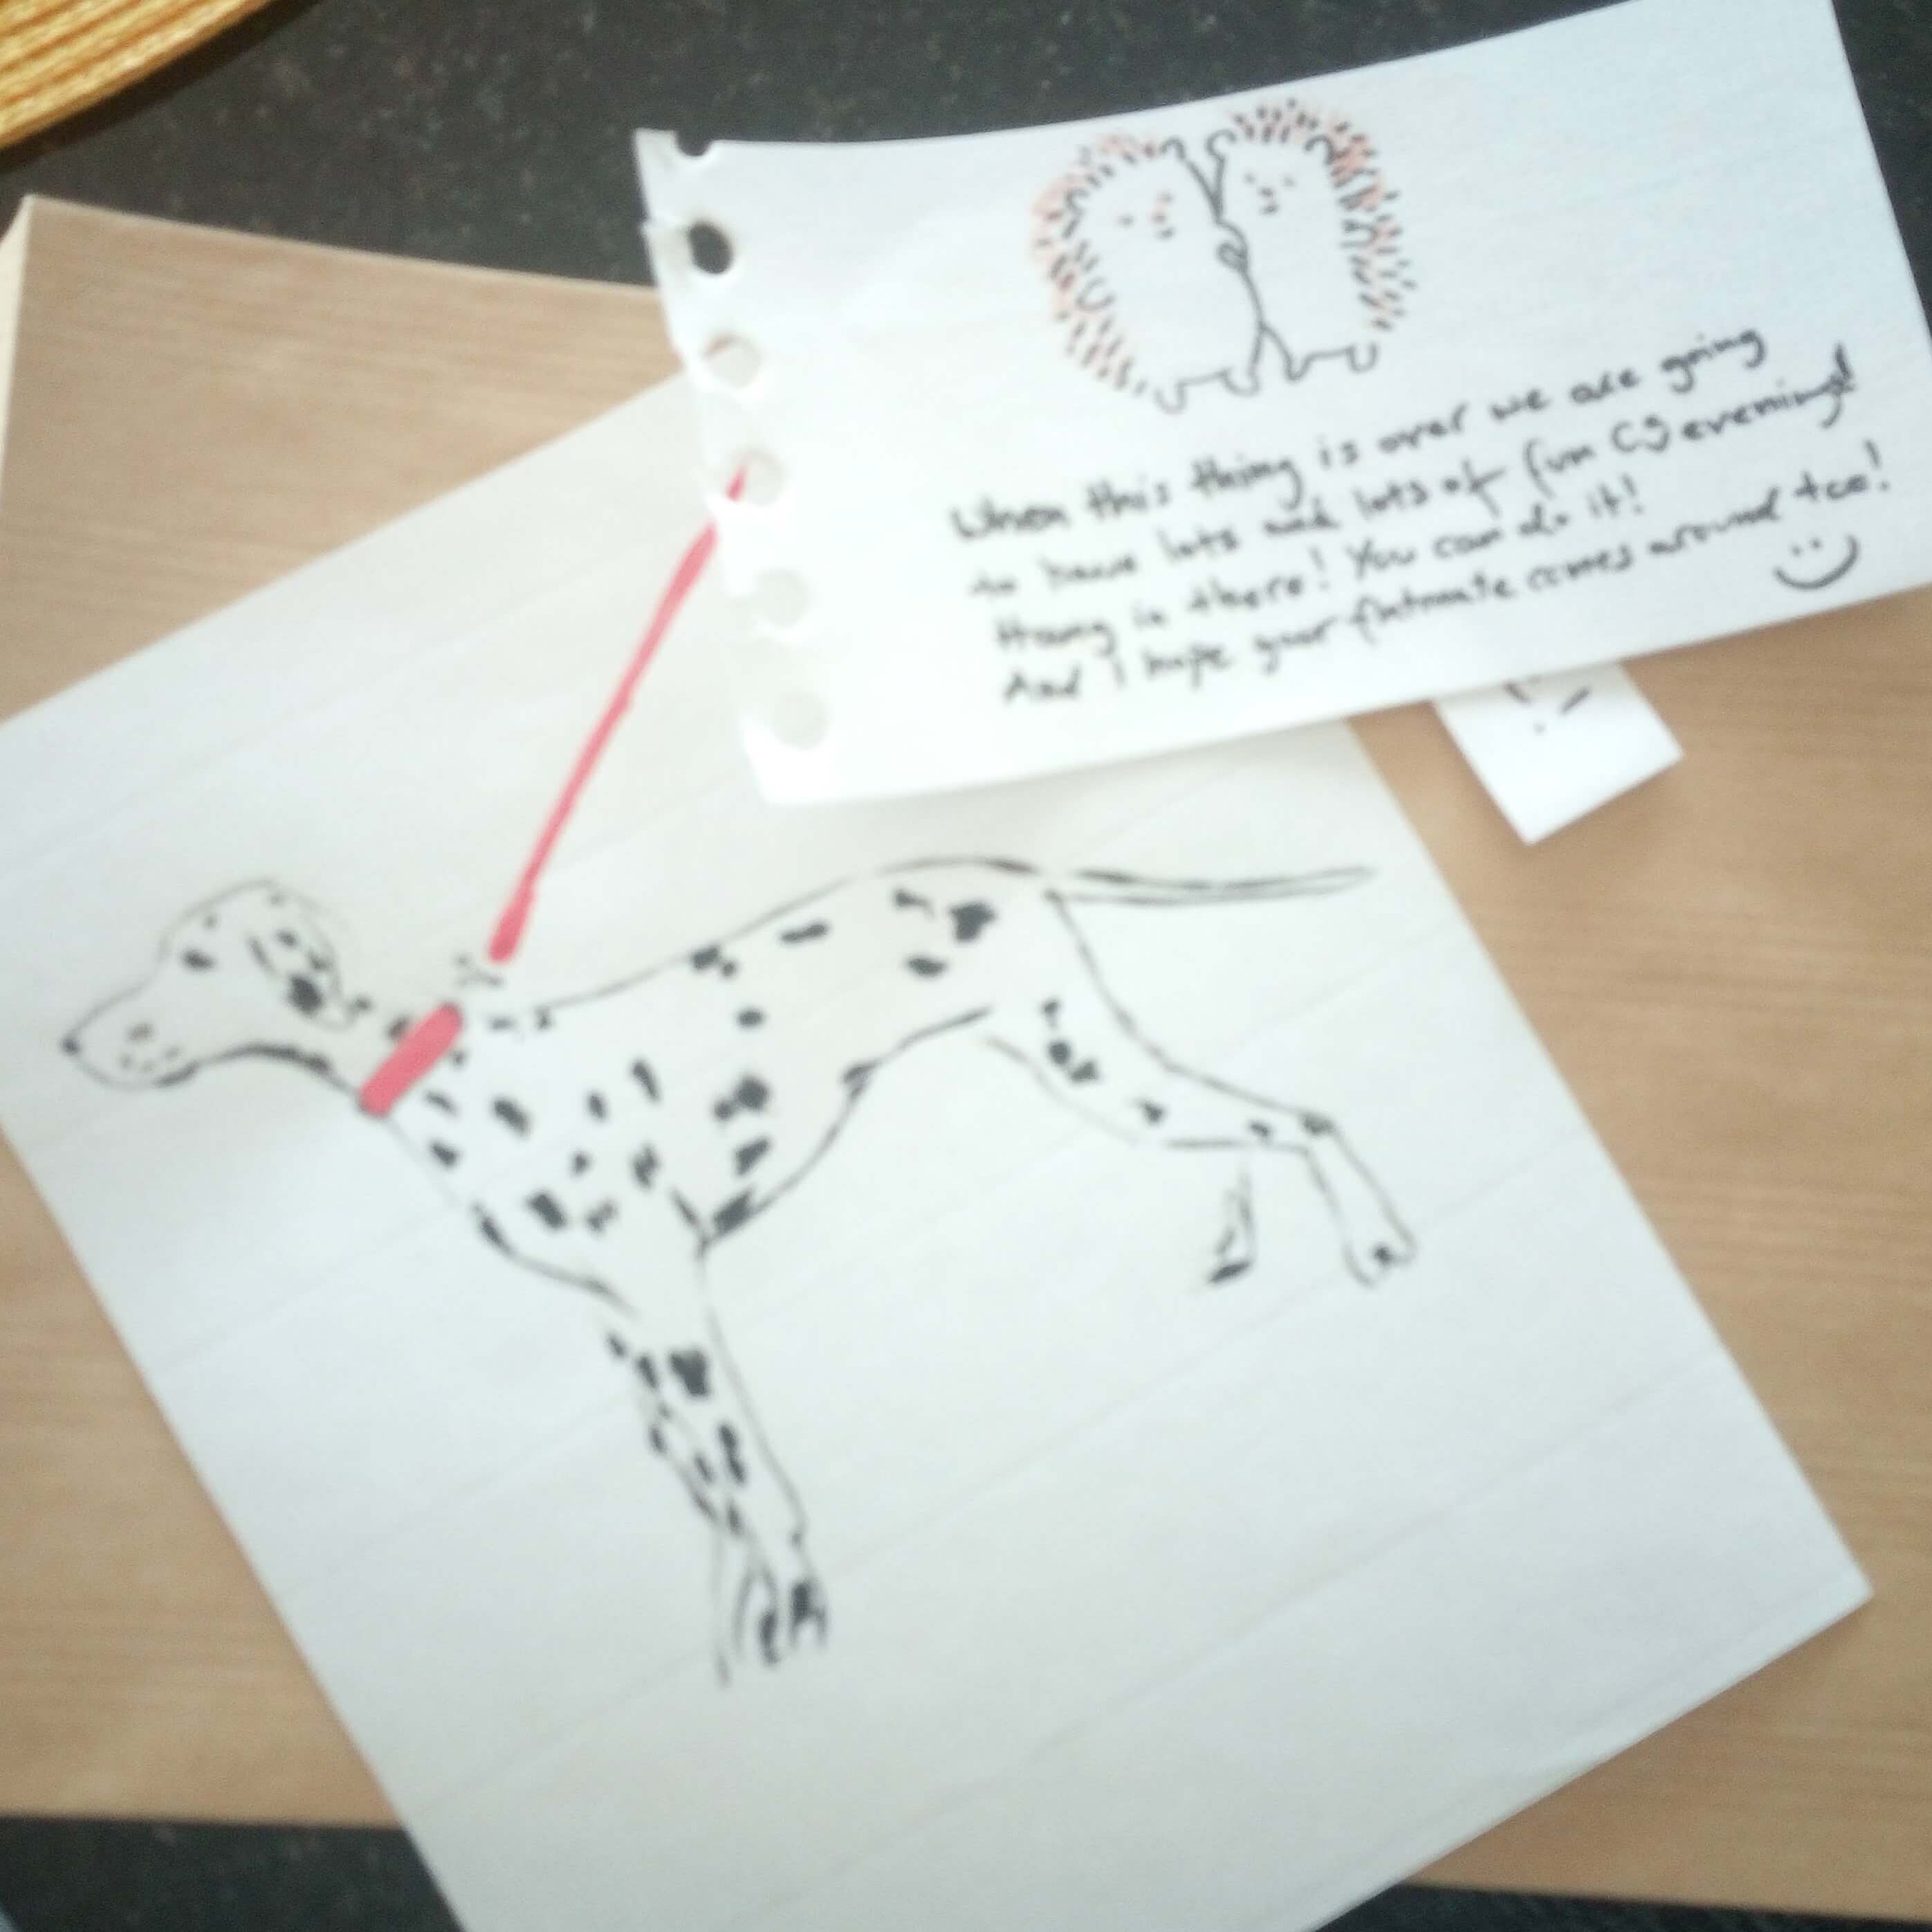 When this thing is over we are going
to have lots and lots of fun CS evenings!
Hang in there! You can do it!
And I hope your flatmate comes around too!